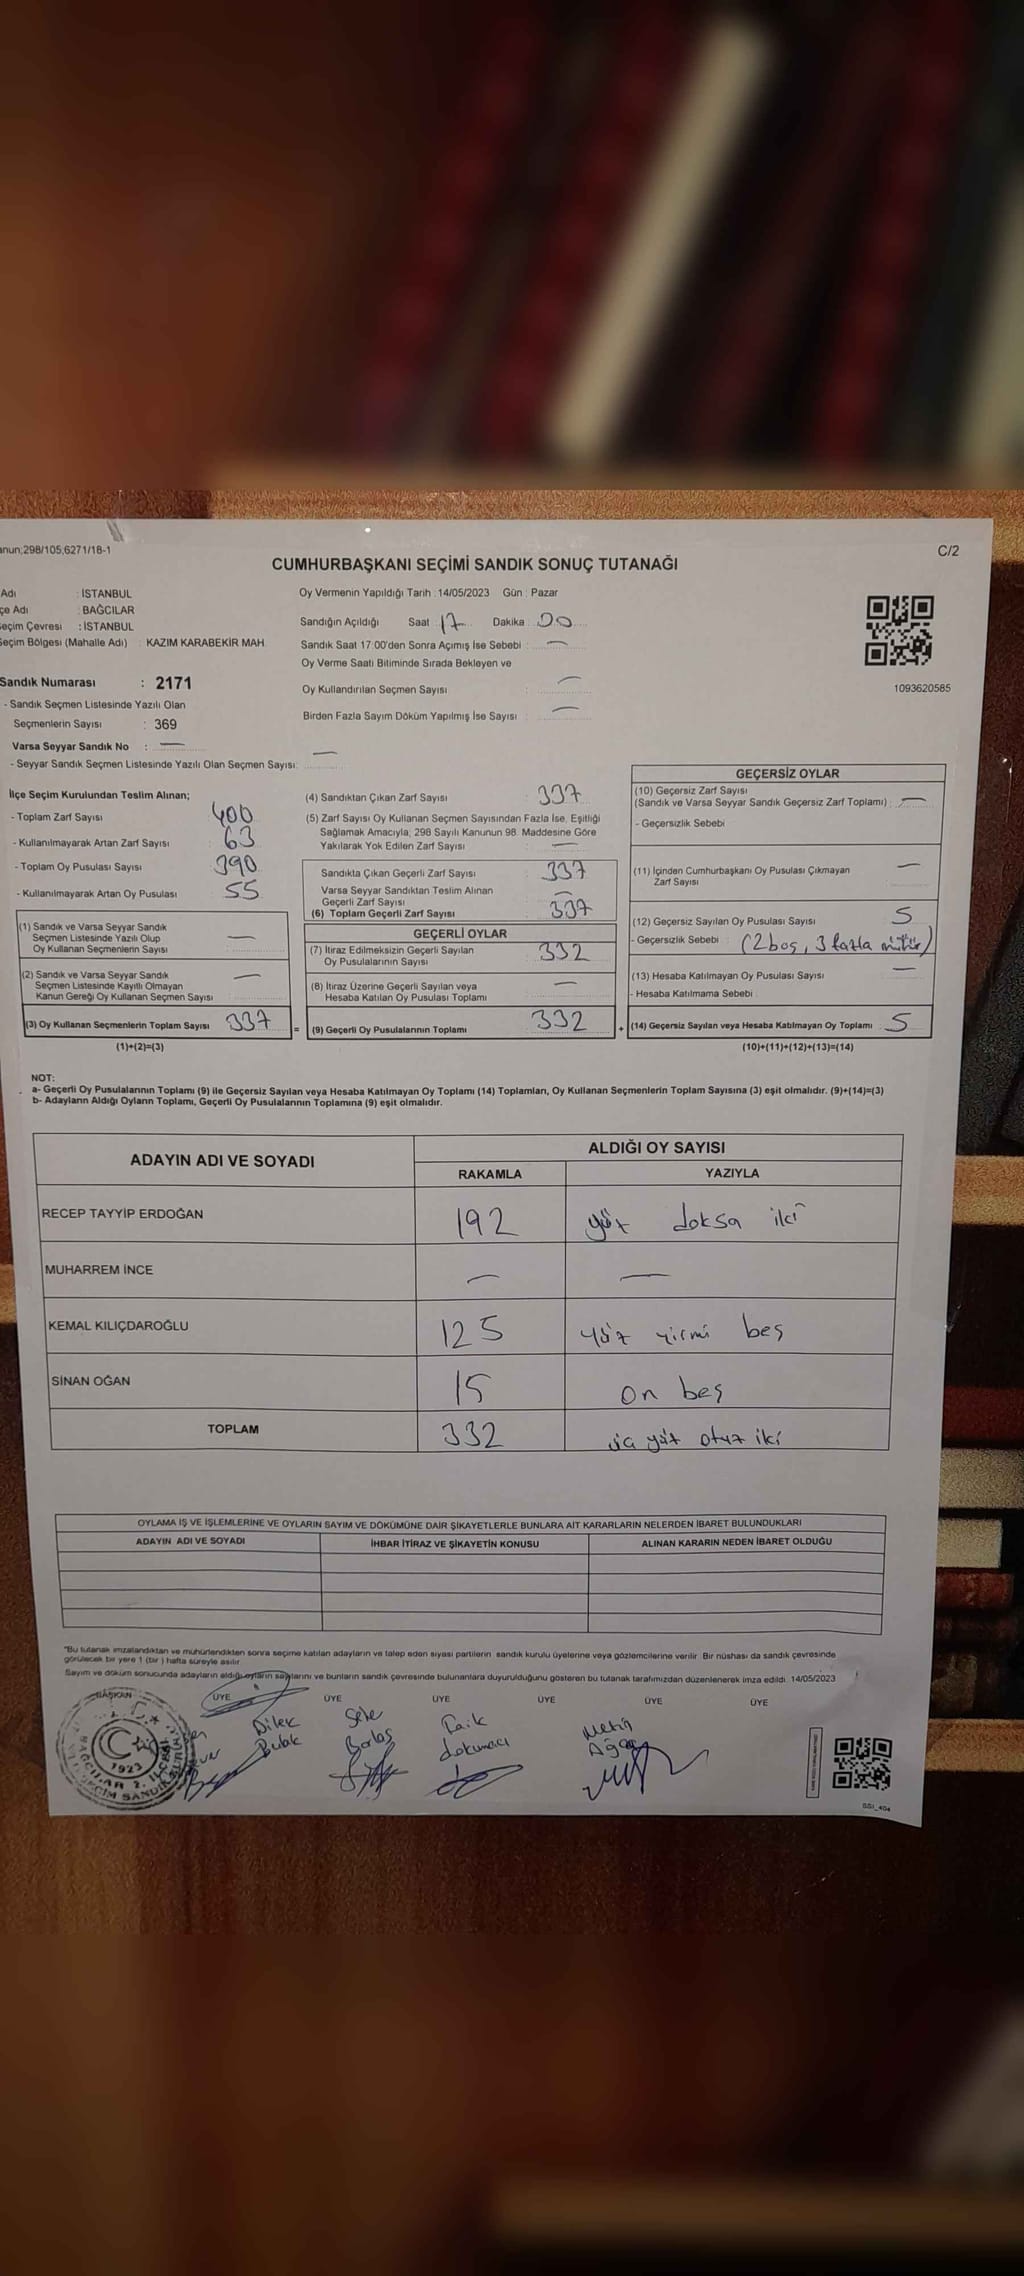 anun;298/105;6271/18-1
C/2
CUMHURBAŞKANI SEÇİMİ SANDIK SONUÇ TUTANAĞI
Adı : İSTANBUL
çe Adı : BAĞCILAR
eçim Çevresi : İSTANBUL
Seçim Bölgesi (Mahalle Adı) : KAZIM KARABEKİR MAH.
Sandık Numarası : 2171
- Sandık Seçmen Listesinde Yazılı Olan
Seçmenlerin Sayısı : 369
Varsa Seyyar Sandık No : —
- Seyyar Sandık Seçmen Listesinde Yazılı Olan Seçmen Sayısı: —
Oy Vermenin Yapıldığı Tarih : 14/05/2023 Gün : Pazar
Sandığın Açıldığı Saat : 17 Dakika : 00
Sandık Saat 17:00'den Sonra Açımış İse Sebebi : —
Oy Verme Saati Bitiminde Sırada Bekleyen ve
Oy Kullandırılan Seçmen Sayısı : —
Birden Fazla Sayım Döküm Yapılmış İse Sayısı : —
1093620585
İlçe Seçim Kurulundan Teslim Alınan;
- Toplam Zarf Sayısı : 400
- Kullanılmayarak Artan Zarf Sayısı : 63
- Toplam Oy Pusulası Sayısı : 390
- Kullanılmayarak Artan Oy Pusulası : 55
(1) Sandık ve Varsa Seyyar Sandık
Seçmen Listesinde Yazılı Olup
Oy Kullanan Seçmenlerin Sayısı : —
(2) Sandık ve Varsa Seyyar Sandık
Seçmen Listesinde Kayıtlı Olmayan
Kanun Gereği Oy Kullanan Seçmen Sayısı : —
(3) Oy Kullanan Seçmenlerin Toplam Sayısı : 337
(1)+(2)=(3)
=
(4) Sandıktan Çıkan Zarf Sayısı : 337
(5) Zarf Sayısı Oy Kullanan Seçmen Sayısından Fazla İse, Eşitliği
Sağlamak Amacıyla; 298 Sayılı Kanunun 98. Maddesine Göre
Yakılarak Yok Edilen Zarf Sayısı : —
Sandıkta Çıkan Geçerli Zarf Sayısı : 337
Varsa Seyyar Sandıktan Teslim Alınan
Geçerli Zarf Sayısı : —
(6) Toplam Geçerli Zarf Sayısı : 337
GEÇERLİ OYLAR
(7) İtiraz Edilmeksizin Geçerli Sayılan
Oy Pusulalarının Sayısı : 332
(8) İtiraz Üzerine Geçerli Sayılan veya
Hesaba Katılan Oy Pusulası Toplamı : —
(9) Geçerli Oy Pusulalarının Toplamı : 332
+
GEÇERSİZ OYLAR
(10) Geçersiz Zarf Sayısı
(Sandık ve Varsa Seyyar Sandık Geçersiz Zarf Toplamı) : —
- Geçersizlik Sebebi :
(11) İçinden Cumhurbaşkanı Oy Pusulası Çıkmayan
Zarf Sayısı : —
(12) Geçersiz Sayılan Oy Pusulası Sayısı : 5
- Geçersizlik Sebebi : (2 boş, 3 fazla mühür)
(13) Hesaba Katılmayan Oy Pusulası Sayısı : —
- Hesaba Katılmama Sebebi :
(14) Geçersiz Sayılan veya Hesaba Katılmayan Oy Toplamı : 5
(10)+(11)+(12)+(13)=(14)
NOT:
a- Geçerli Oy Pusulalarının Toplamı (9) ile Geçersiz Sayılan veya Hesaba Katılmayan Oy Toplamı (14) Toplamları, Oy Kullanan Seçmenlerin Toplam Sayısına (3) eşit olmalıdır. (9)+(14)=(3)
b- Adayların Aldığı Oyların Toplamı, Geçerli Oy Pusulalarının Toplamına (9) eşit olmalıdır.
ADAYIN ADI VE SOYADI
ALDIĞI OY SAYISI
RAKAMLA YAZIYLA
RECEP TAYYİP ERDOĞAN 192 yüz doksa iki
MUHARREM İNCE — —
KEMAL KILIÇDAROĞLU 125 yüz yirmi beş
SİNAN OĞAN 15 on beş
TOPLAM 332 üç yüz otuz iki
OYLAMA İŞ VE İŞLEMLERİNE VE OYLARIN SAYIM VE DÖKÜMÜNE DAİR ŞİKAYETLERLE BUNLARA AİT KARARLARIN NELERDEN İBARET BULUNDUKLARI
ADAYIN ADI VE SOYADI İHBAR İTİRAZ VE ŞİKAYETİN KONUSU ALINAN KARARIN NEDEN İBARET OLDUĞU
"Bu tutanak imzalandıktan ve mühürlendikten sonra seçime katılan adayların ve talep eden siyasi partilerin sandık kurulu üyelerine veya gözlemcilerine verilir. Bir nüshası da sandık çevresinde
görülecek bir yere 1 (bir) hafta süreyle asılır.
Sayım ve döküm sonucunda adayların aldığı oyların sayılarını ve bunların sandık çevresinde bulunanlara duyurulduğunu gösteren bu tutanak tarafımızdan düzenlenerek imza edildi. 14/05/2023
BAŞKAN ÜYE ÜYE ÜYE ÜYE ÜYE ÜYE
Dilek Faik Metin
Bulak dokumacı
1923
BAĞCILAR 2. İLÇESİ
SEÇİM SANDIK KURULU